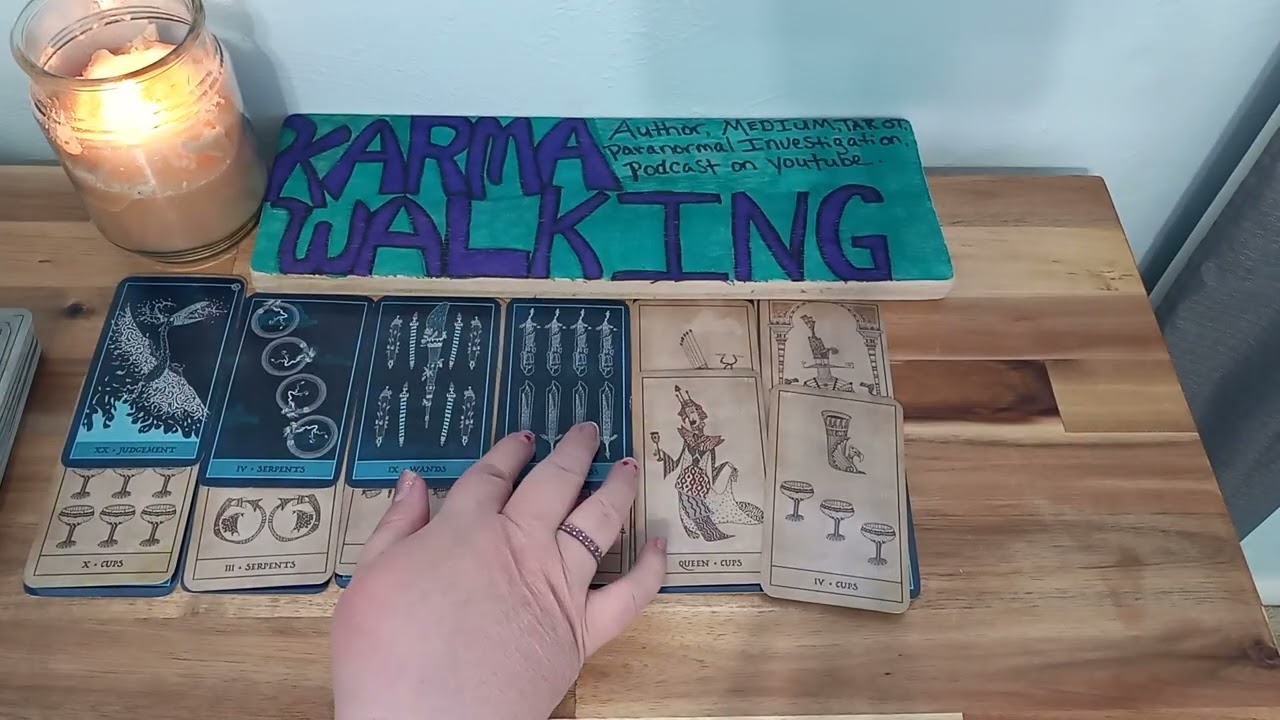 KARMA
WALKING
Author, MEDIUM, TAROT,
Paranormal Investigation,
Podcast on youtube.
XX • JUDGEMENT
IV • SERPENTS
IX • WANDS
X • CUPS
III • SERPENTS
QUEEN • CUPS
IV • CUPS